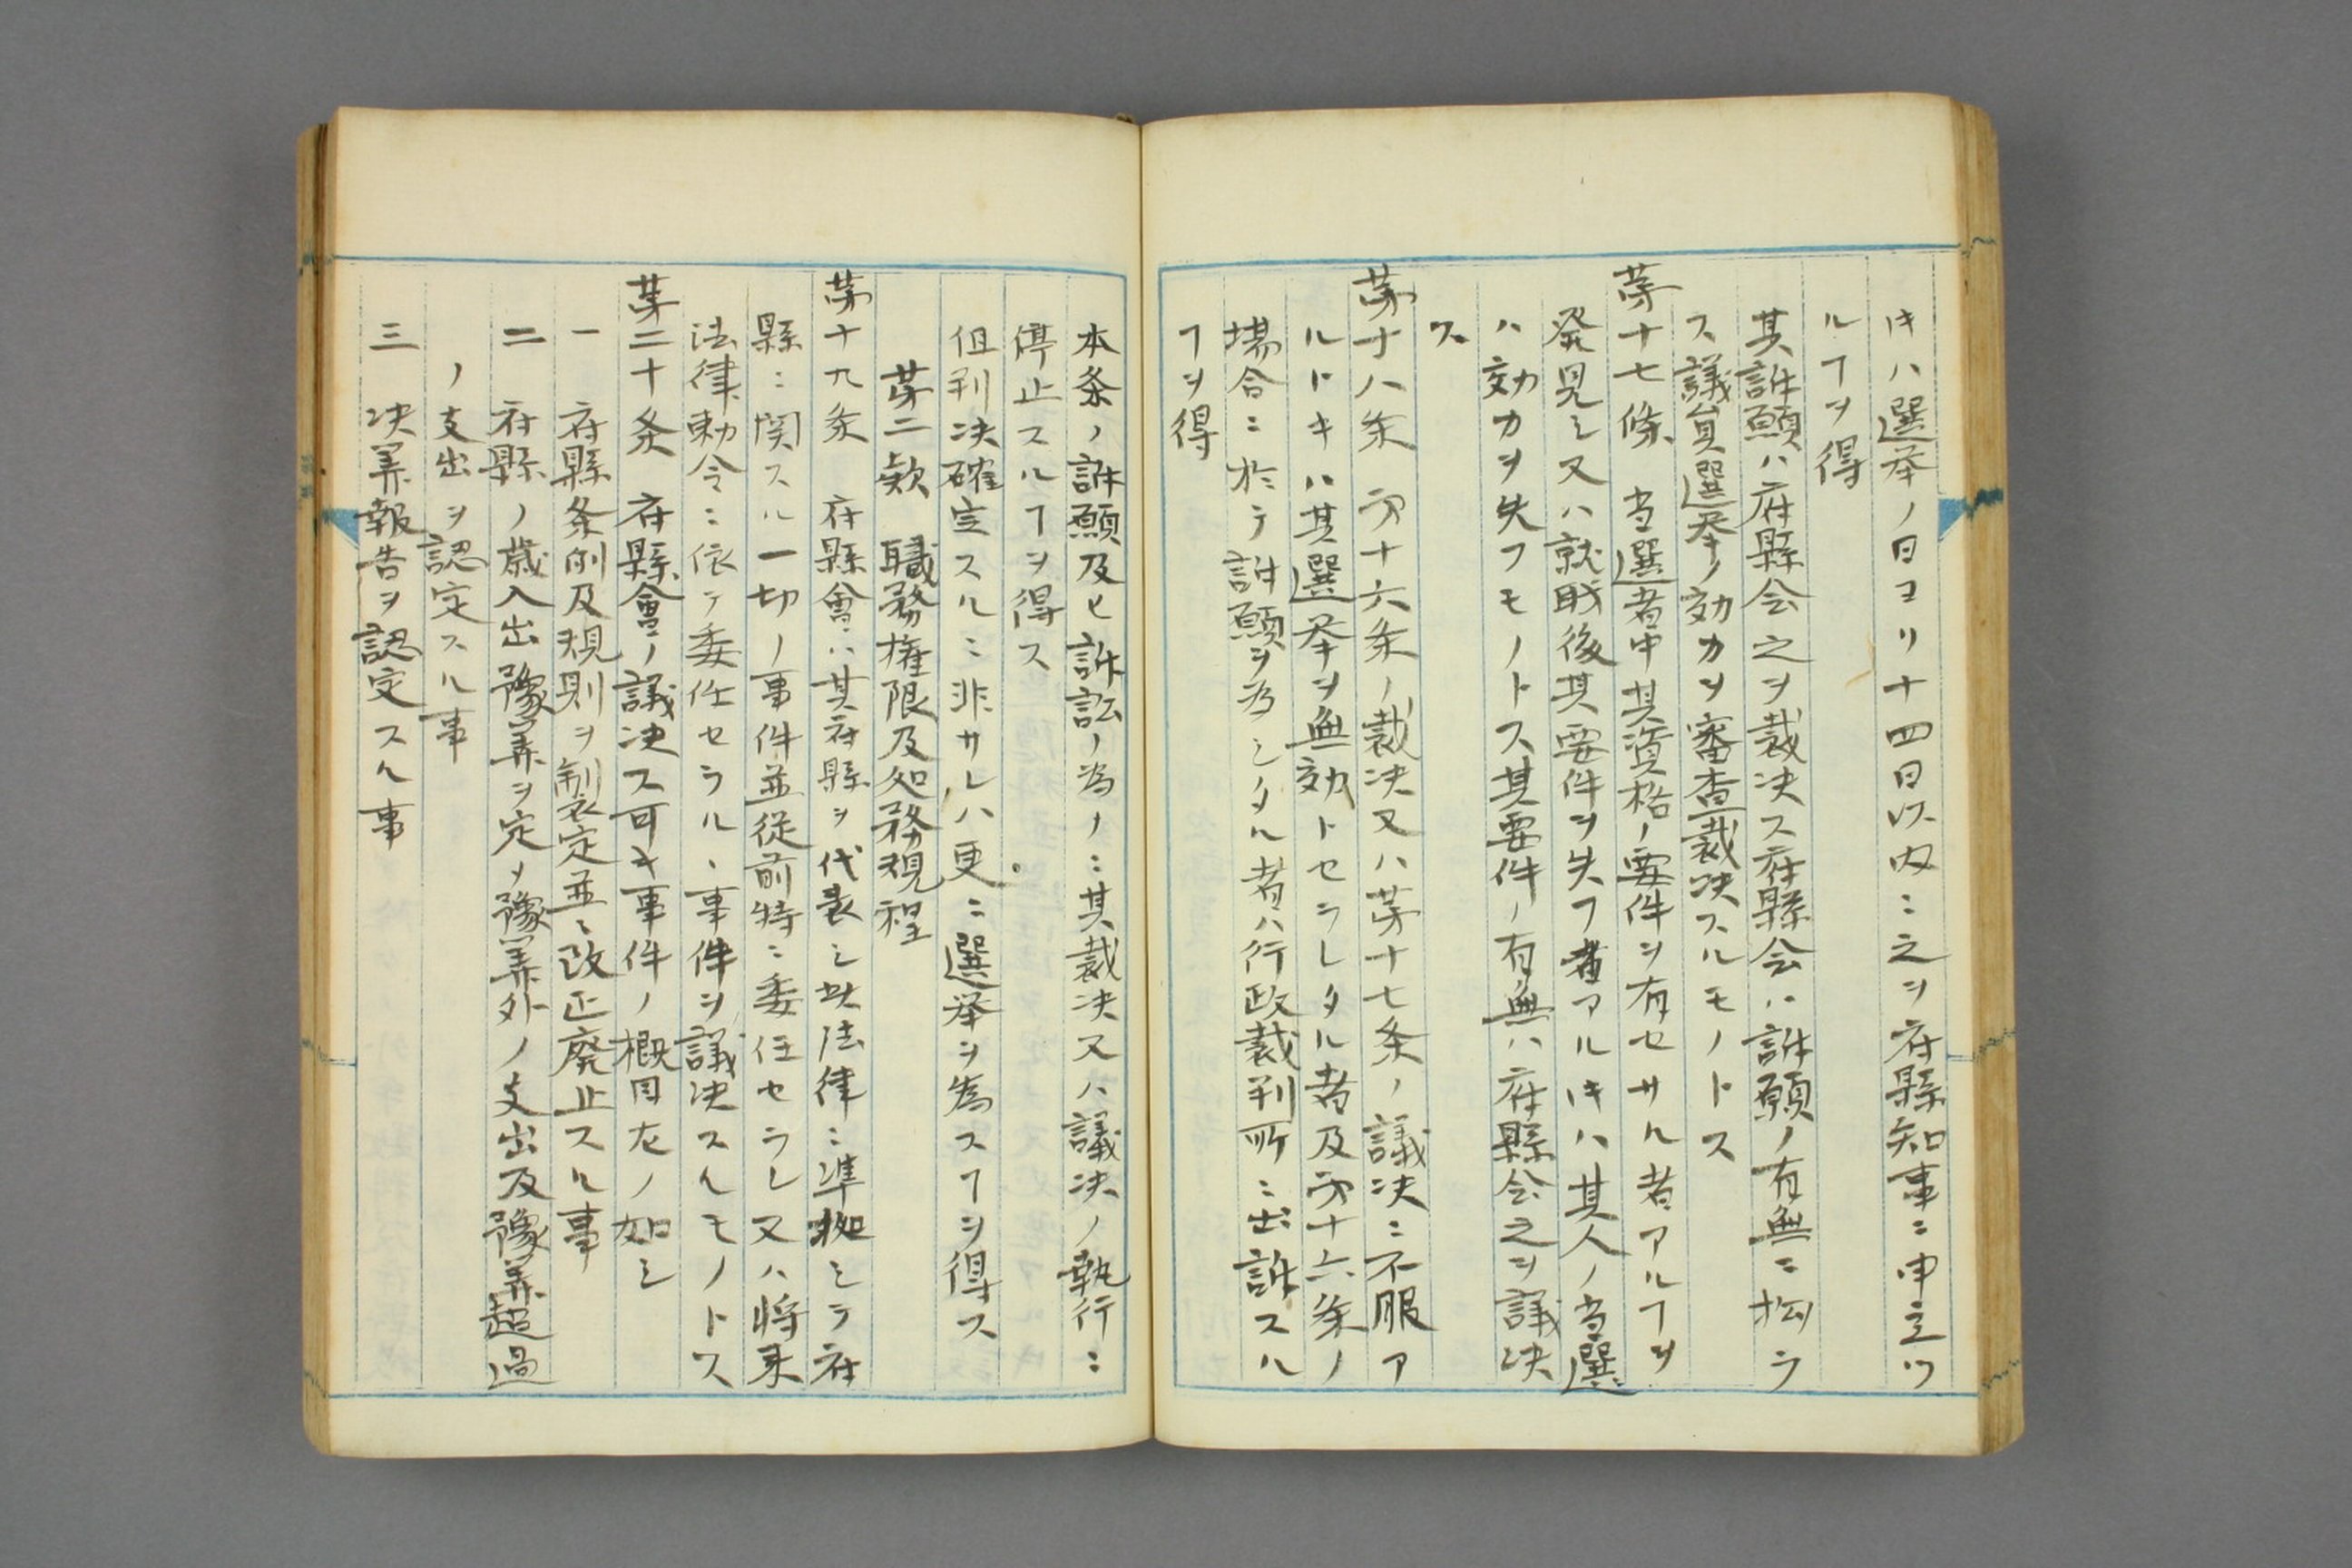 𬼀ハ選挙ノ日ヨリ十四日以内ニ之ヲ府縣知事ニ申立ツ
ルヿヲ得
其訴願ハ府縣会之ヲ裁决ス府縣会ハ訴願ノ有無ニ拘ラ
ス議員選挙ノ効力ヲ審査裁决スルモノトス
第十七條 当選者中其資格ノ要件ヲ有セサル者アルヿヲ
発見シ又ハ就職後其要件ヲ失フ者アルトキハ其人ノ当選
ハ効力ヲ失フモノトス其要件ノ有無ハ府縣会之ヲ議决
ス
第十八条 第十六条ノ裁决又ハ第十七条ノ議决ニ不服ア
ルトキハ其選挙ヲ無効トセラレタル者及第十六条ノ
場合ニ於テ訴願ヲ為シタル者ハ行政裁判所ニ出訴スル
ヿヲ得
本条ノ訴願及ヒ訴訟ノ為メニ其裁决又ハ議决ノ執行ニ
停止スルヿヲ得ス
但判决確定スルニ非サレハ更ニ選挙ヲ為スヿヲ得ス
第二欵 職務権限及処務規程
第十九条 府縣會ハ其府縣ヲ代表シ此法律ニ準拠シテ府
縣ニ関スル一切ノ事件並従前特ニ委任セラレ又ハ将来
法律勅令ニ依テ委任セラルヽ事件ヲ議决スルモノトス
第二十条 府縣會ノ議决ス可キ事件ノ概目左ノ如シ
一 府縣条例及規則ヲ制定並ニ改正廃止スル事
二 府縣ノ歳入出豫算ヲ定メ豫算外ノ支出及豫算超過
ノ支出ヲ認定スル事
三 决算報告ヲ認定スル事